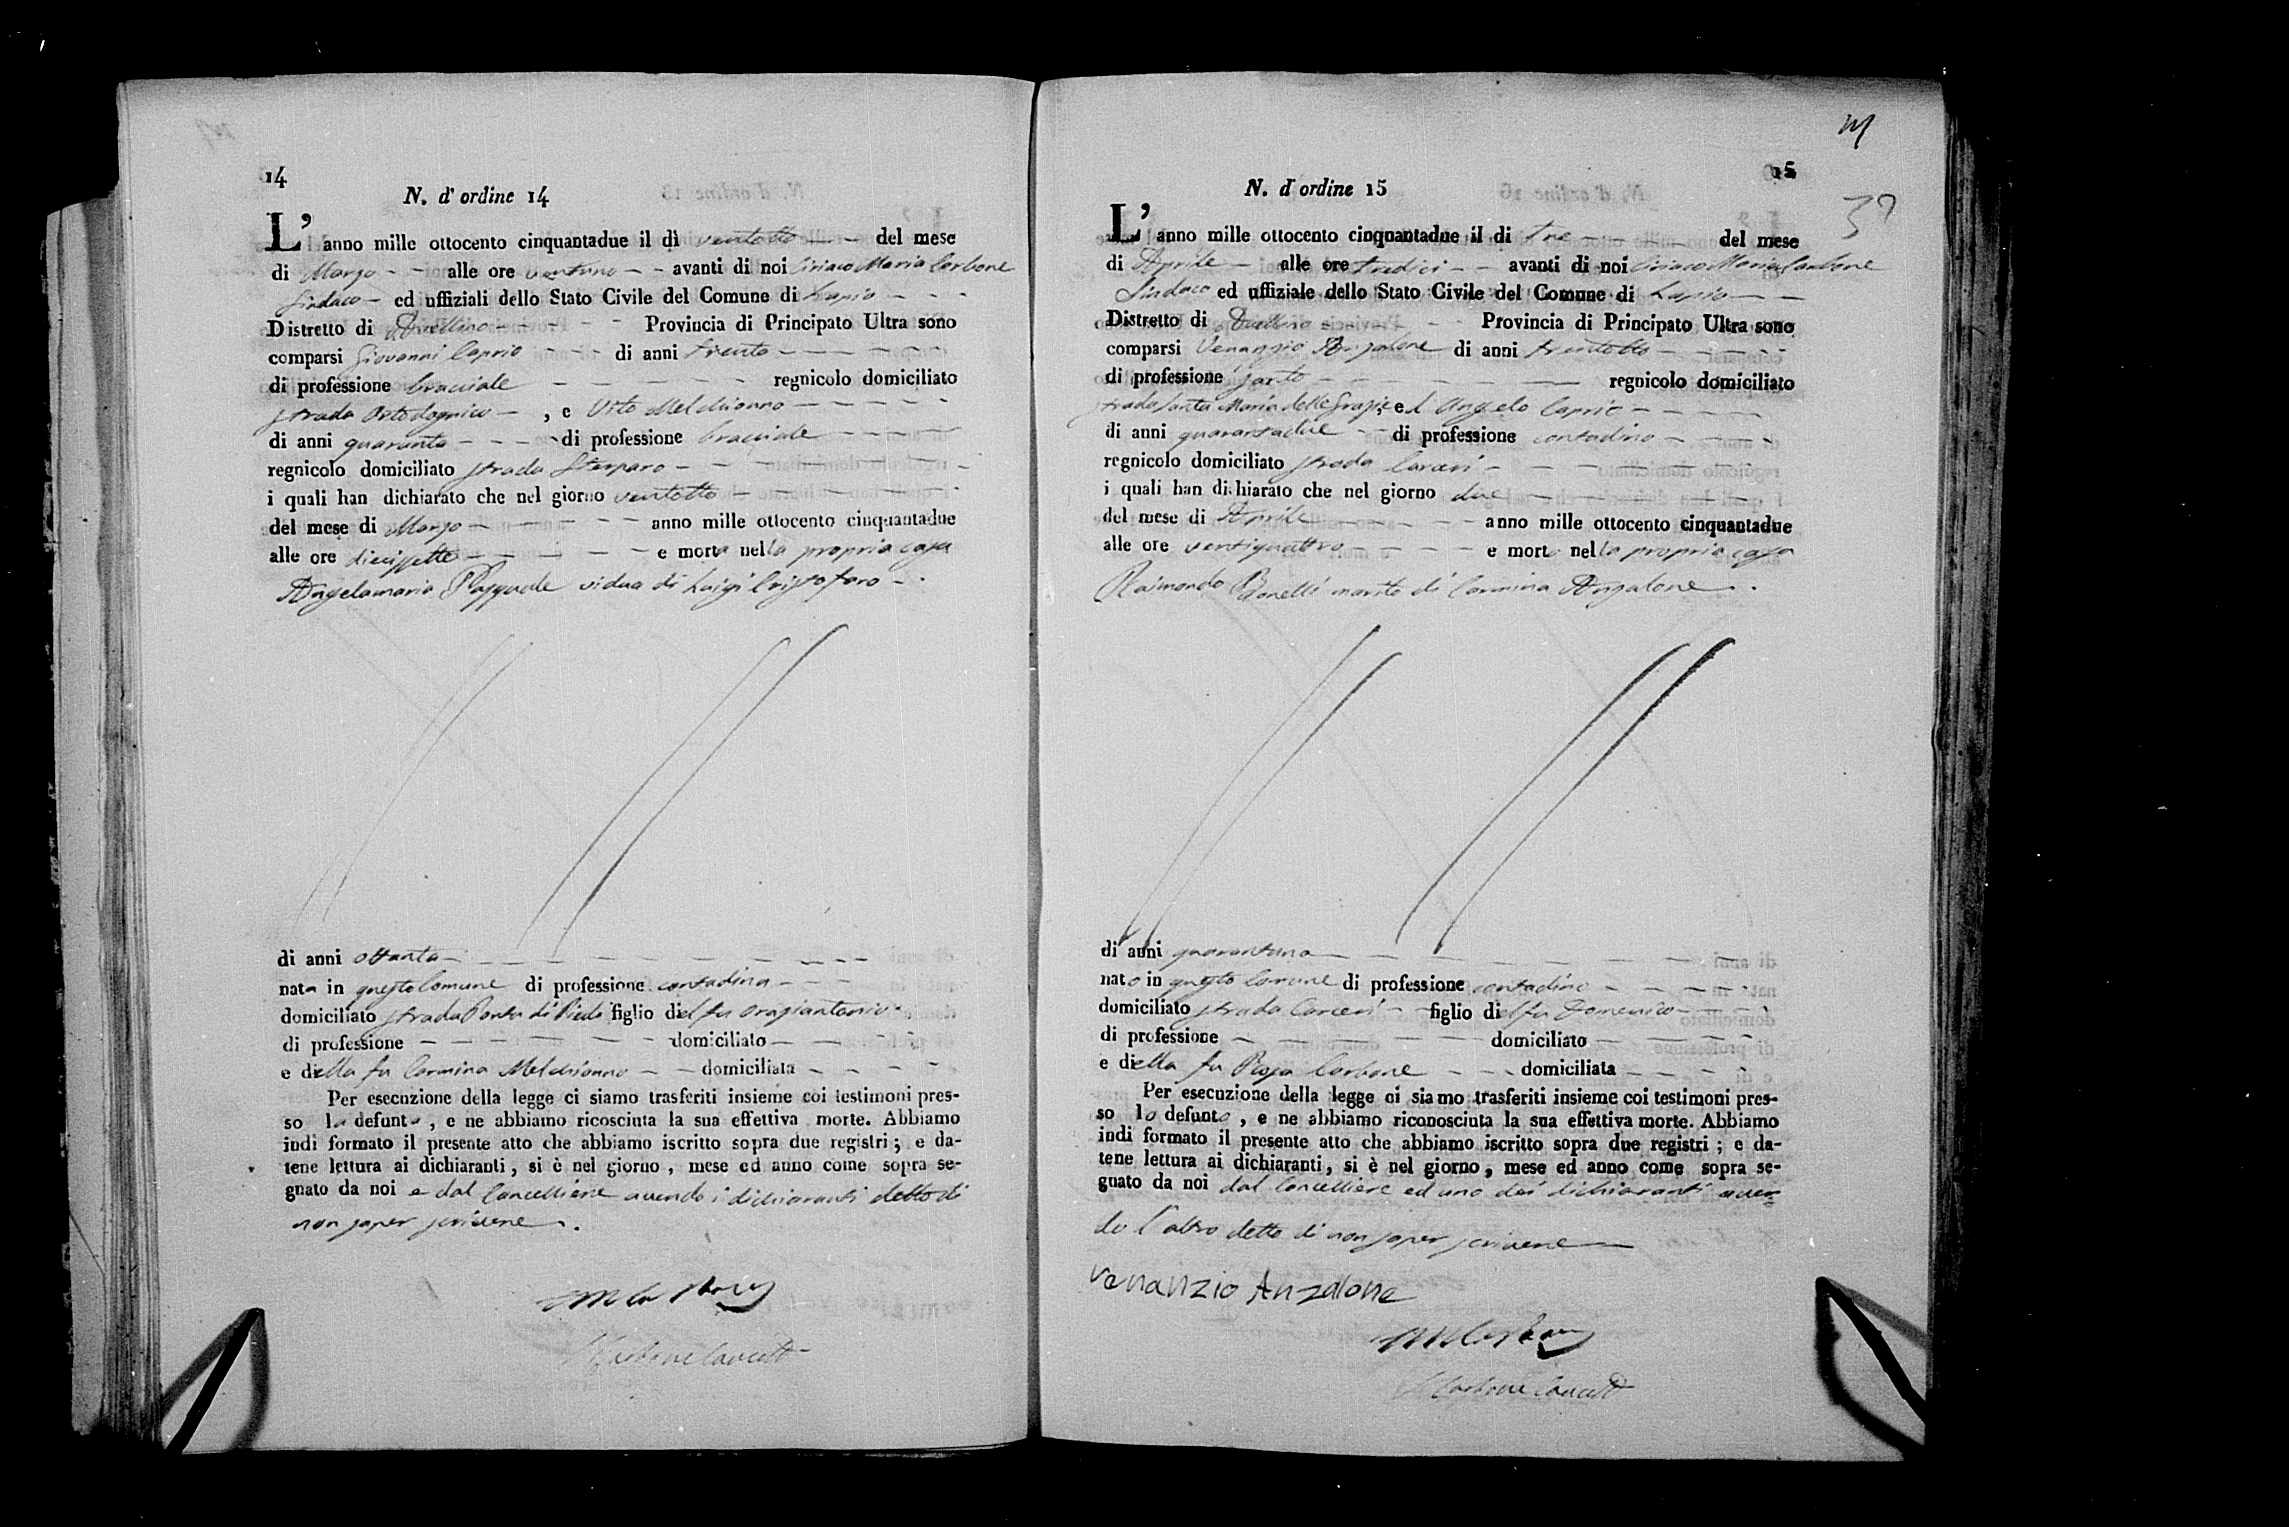 14
N. d'ordine 14
L'anno mille ottocento cinquantadue il dì ventotto del mese
di Marzo alle ore ventuno avanti di noi Ciriaco Maria Carbone
Sindaco ed uffiziali dello Stato Civile del Comune di Lapio
Distretto di Avellino Provincia di Principato Ultra sono
comparsi Giovanni Caprio di anni trenta
di professione bracciale regnicolo domiciliato
strada , e Vito Melchionno
di anni quaranta di professione bracciale
regnicolo domiciliato strada Sterparo
i quali han dichiarato che nel giorno ventotto
del mese di Marzo anno mille ottocento cinquantadue
alle ore diecissette e morta nella propria casa
Angelamaria Pasquale vidua di Luigi Cristofaro
di anni ottanta
nata in questo Comune di professione contadina
domiciliato strada Porta di figlio del fu Oraziantonio
di professione domiciliato
e della fu Carmina Melchionno domiciliata
Per esecuzione della legge ci siamo trasferiti insieme coi testimoni pres-
so la defunta , e ne abbiamo ricosciuta la sua effettiva morte. Abbiamo
indi formato il presente atto che abbiamo iscritto sopra due registri ; e da-
tene lettura ai dichiaranti , si è nel giorno , mese ed anno come sopra se-
gnato da noi e dal Cancelliere avendo i dichiaranti detto di
non saper scrivere
Carbone Cancell
15
N. d'ordine 15
L'anno mille ottocento cinquantadue il di tre del mese
di Aprile alle ore tredici avanti di noi Ciriaco Maria Carbone
Sindaco ed uffiziale dello Stato Civile del Comune di Lapio
Distretto di Avellino Provincia di Principato Ultra sono
comparsi Venanzio Anzalone di anni trentotto
di professione sarto regnicolo domiciliato
strada Santa Maria delle Grazie, ed Angelo Caprio
di anni quarantadue di professione contadino
regnicolo domiciliato strada Carceri
i quali han dichiarato che nel giorno due
del mese di Aprile anno mille ottocento cinquantadue
alle ore ventiquattro e morto nella propria casa
Raimondo Bonelli marito di Carmina Anzalone
di anni quarantuno
nato in questo Comune di professione contadino
domiciliato strada Carceri figlio del fu Domenico
di professione domiciliato
e della fu Rosa Carbone domiciliata
Per esecuzione della legge ci siamo trasferiti insieme coi testimoni pres-
so lo defunto , e ne abbiamo riconosciuta la sua effettiva morte. Abbiamo
indi formato il presente atto che abbiamo iscritto sopra due registri ; e da-
tene lettura ai dichiaranti, si è nel giorno, mese ed anno come sopra se-
gnato da noi dal Cancelliere ed uno dei dichiaranti aven-
do l'altro detto di non saper scrivere
Venanzio Anzalone
Carbone Cancell